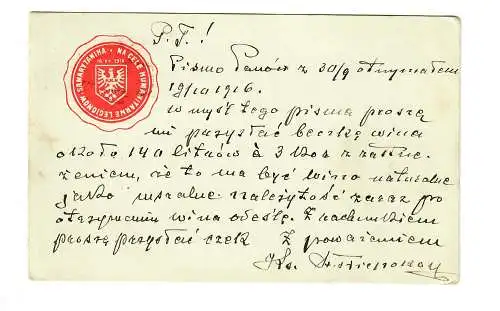 NA CELE HUMANITARNE LEGIONÓW. SAMARYTANKA
16.VIII.1914
P. T. !
Pismo Panów z 30/9 otrzymałem
12/10 1916.
W myśl tego pisma proszę
mi przysłać beczkę wina
około 140 litrów à 3 Kor z zastrze-
żeniem, że to ma być wino naturalne
jako mszalne. Należytość zaraz po
otrzymaniu wina odeślę. Z rachunkiem
proszę przysłać czek Z poważaniem
Ks.